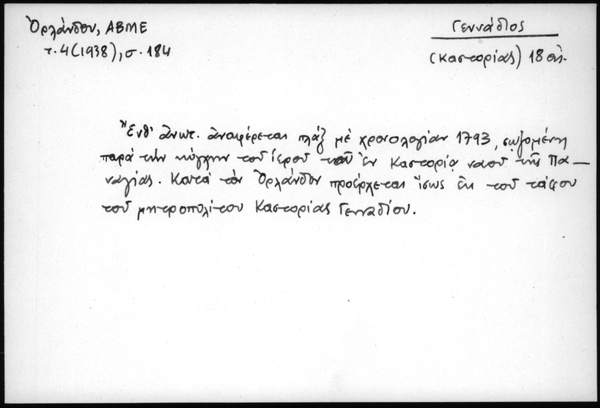 Ὀρλάνδου, ΑΒΜΕ
τ. 4 (1938), σ. 184
Γεννάδιος
(Καστορίας) 18 αἰ.
Ἔνθ' ἀνωτ. ἀναφέρεται πλάξ μὲ χρονολογίαν 1793, σωζομένη
παρὰ τὴν κόγχην τοῦ ἱεροῦ τοῦ ἐν Καστορίᾳ ναοῦ τῆς Πα-
ναγίας. Κατὰ τὸν Ὀρλάνδον προέρχεται ἴσως ἐκ τοῦ τάφου
τοῦ μητροπολίτου Καστορίας Γενναδίου.